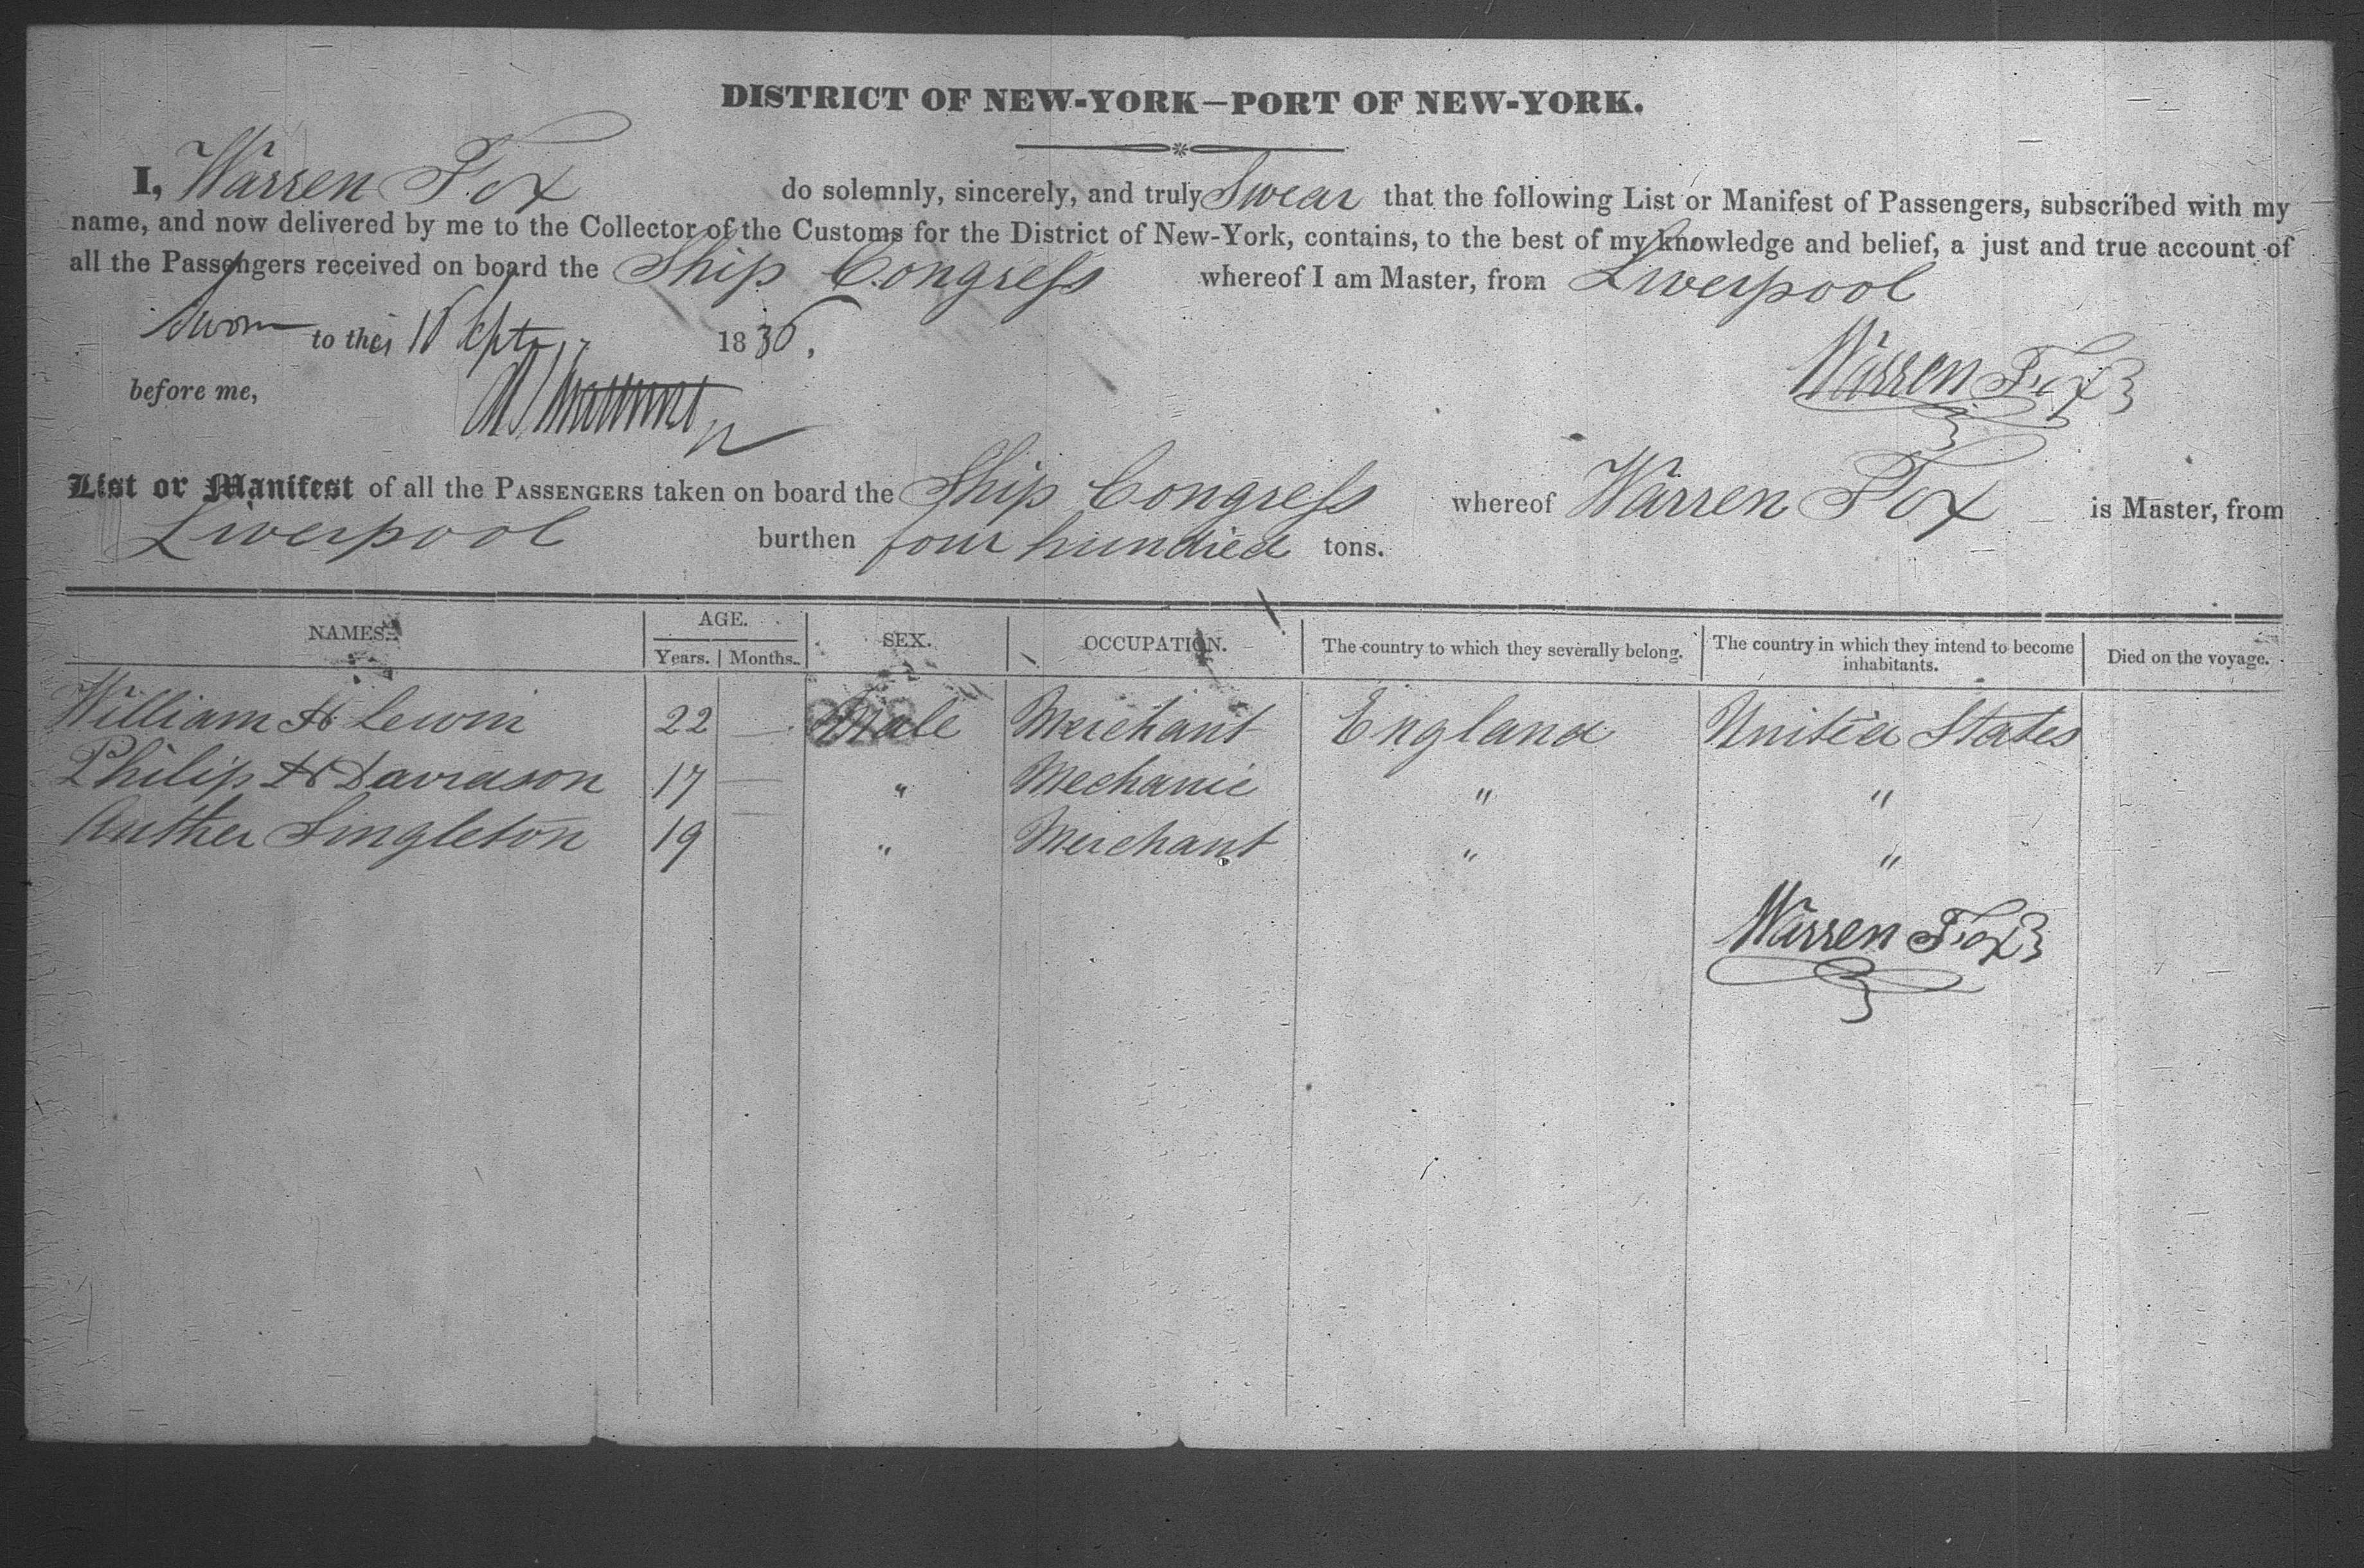 DISTRICT OF NEW-YORK—PORT OF NEW-YORK.
I, Warren Fox do solemnly, sincerely, and truly Swear that the following List or Manifest of Passengers, subscribed with my
name, and now delivered by me to the Collector of the Customs for the District of New-York, contains, to the best of my knowledge and belief, a just and true account of
all the Passengers received on board the Ship Congress whereof I am Master, from Liverpool
Sworn to this Sept 1836.
Warren Fox
before me,
List or Manifest of all the PASSENGERS taken on board the Ship Congress whereof Warren Fox is Master, from
Liverpool burthen four hundred tons.
NAMES. AGE. SEX. OCCUPATION. The country to which they severally belong. The country in which they intend to become inhabitants. Died on the voyage.
Years. Months.
William H Lewin 22 — Male Merchant England United States
Philip H Davidson 17 — " Mechanic " "
Auther Singleton 19 — " Merchant " "
Warren Fox